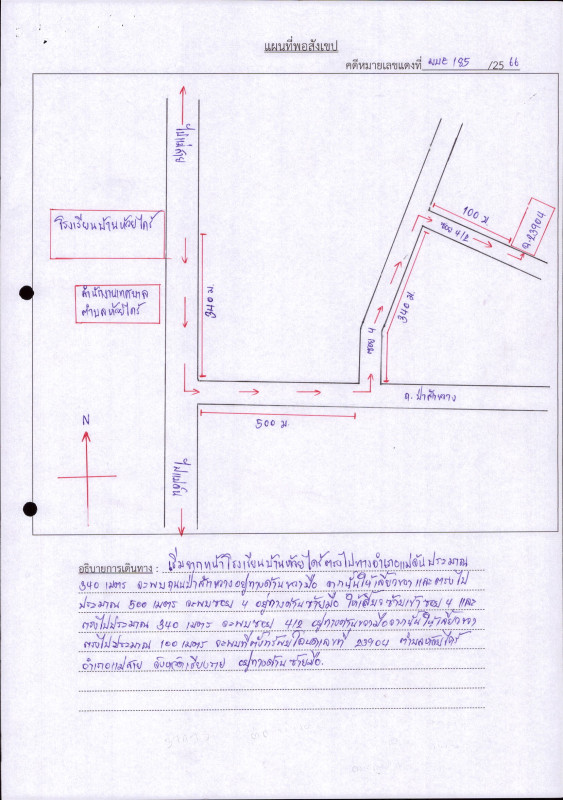 แผนที่พอสังเขป
คดีหมายเลขแดงที่ ผบE 185 /25 66
ไปแม่สาย
โรงเรียนบ้านห้วยไคร้
สำนักงานเทศบาล
ตำบลห้วยไคร้
340 ม
100 ม
ซอย 4/2
ฉ.23904
340 ม
ซอย 4
ถ. ป่าสักขวาง
500 ม.
N
ไปแม่จัน
อธิบายการเดินทาง : เริ่มจากหน้าโรงเรียนบ้านห้วยไคร้ตรงไปทางอำเภอแม่จันประมาณ
340 เมตร จะพบถนนป่าสักขวางอยู่ทางด้านขวามือ จากนั้นให้เลี้ยวขวาและตรงไป
ประมาณ 500 เมตร จะพบซอย 4 อยู่ทางด้านซ้ายมือ ให้เลี้ยวซ้ายเข้าซอย 4 และ
ตรงไปประมาณ 340 เมตร จะพบซอย 4/2 อยู่ทางด้านขวามือจากนั้นให้เลี้ยวขวา
ตรงไปประมาณ 100 เมตร จะพบที่ตั้งทรัพย์โฉนดเลขที่ 23904 ตำบลห้วยไคร้
อำเภอแม่สาย จังหวัดเชียงราย อยู่ทางด้านซ้ายมือ.